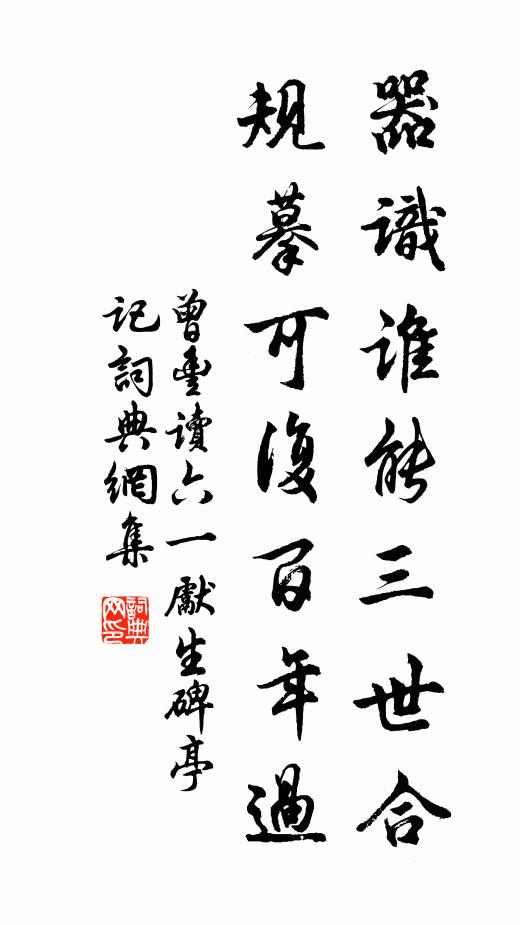 器識誰能三世合
規摹可復百年過
曾豐讀六一獻生碑亭
記詞典網集
詞典
网印